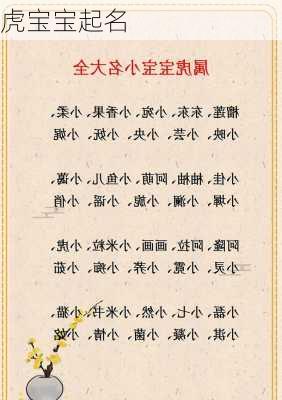 虎宝宝起名
属虎宝宝小名大全
榴莲、东东、小宛、小香果、小柔、
小映、小芸、小央、小妩、小娓
小佳、柚柚、阿萌、小鱼儿、小蔼、
小墀、小澜、小旎、小谣、小俏
阿隆、阿拉、画画、小米粒、小虎、
小灵、小霓、小荞、小痴、小茹
小磊、小七、小然、小米书、小猫、
小淇、小凝、小菌、小情、小铭